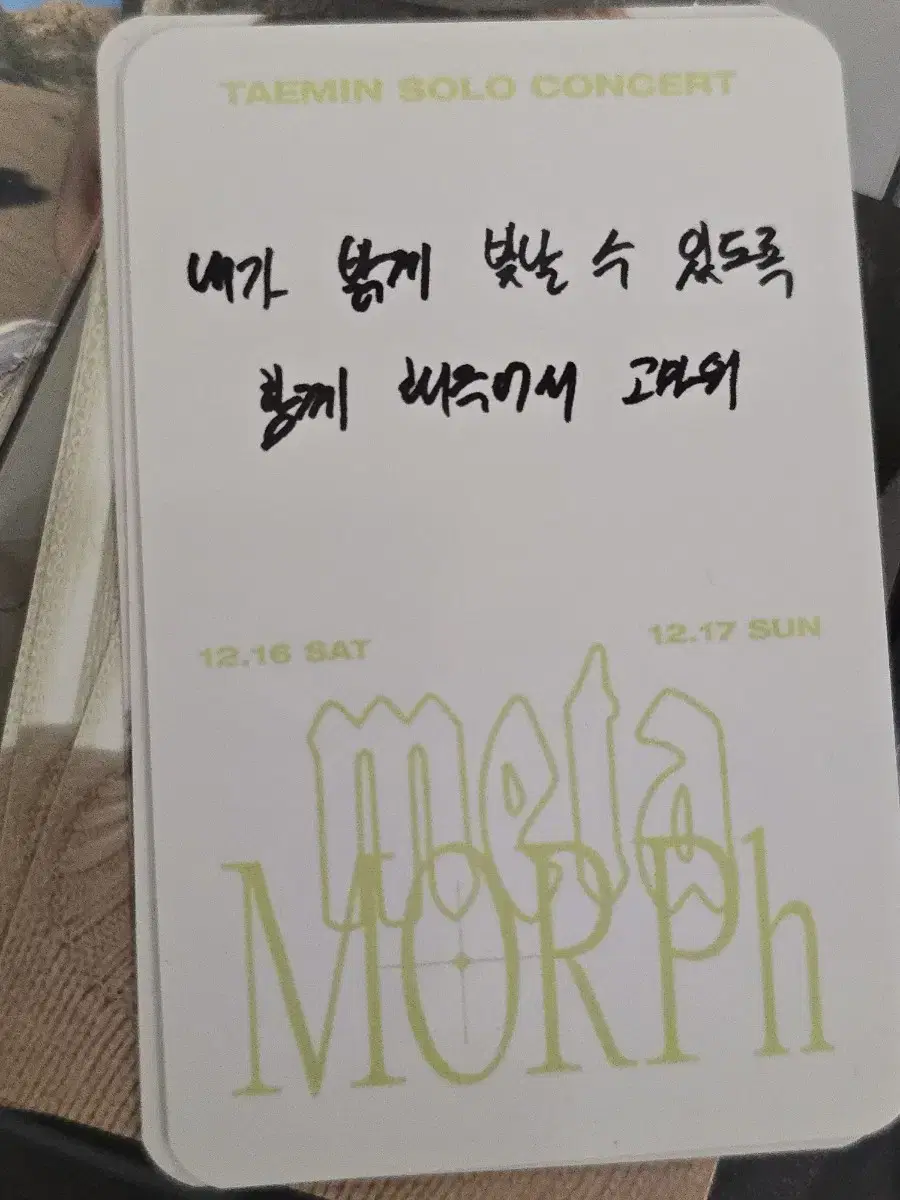 TAEMIN SOLO CONCERT
내가 밝게 빛날 수 있도록
함께 해주어서 고마워
12.16 SAT
12.17 SUN
meta
MORPh